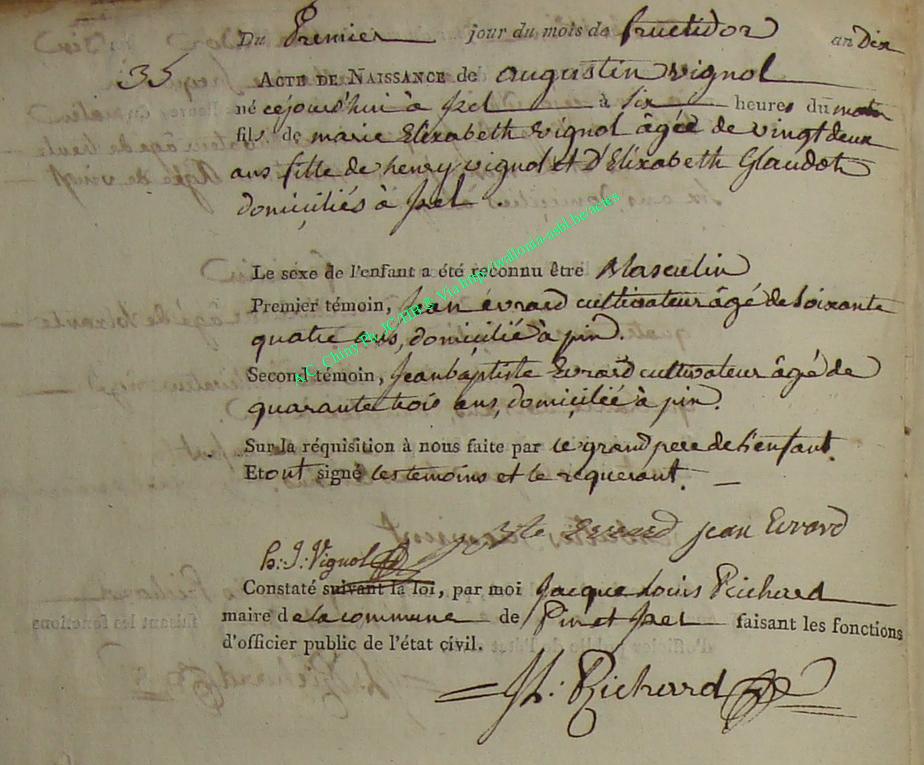 Du Premier jour du mois de fructidor an Dix
35 ACTE DE NAISSANCE de augustin vignol
né cejourd'hui à izel à six heures du matin
fils de marie Elizabeth vignol âgée de vingt deux
ans fille de henry vignol et D'Elizabeth Glaudot
domiciliés à izel.
Le sexe de l'enfant a été reconnu être Masculin
Premier témoin, Jean évrard cultivateur âgé de soixante
quatre ans, domiciliée à pin.
Second témoin, Jeanbaptiste Evrard cultivateur âgé de
quarante trois ans, domiciliée à pin.
Sur la réquisition à nous faite par le grand pere de l'enfant.
Et ont signé les temoins et le requerant.
evrard jean Evrard
h: J: Vignol
Constaté suivant la loi, par moi Jacque Louis Richard
maire de la commune de Pin et izel faisant les fonctions
d'officier public de l'état civil.
JL: Richard
A/C. Chiny Pr. JC Tin® Via http://wallonia-asbl.be/actes